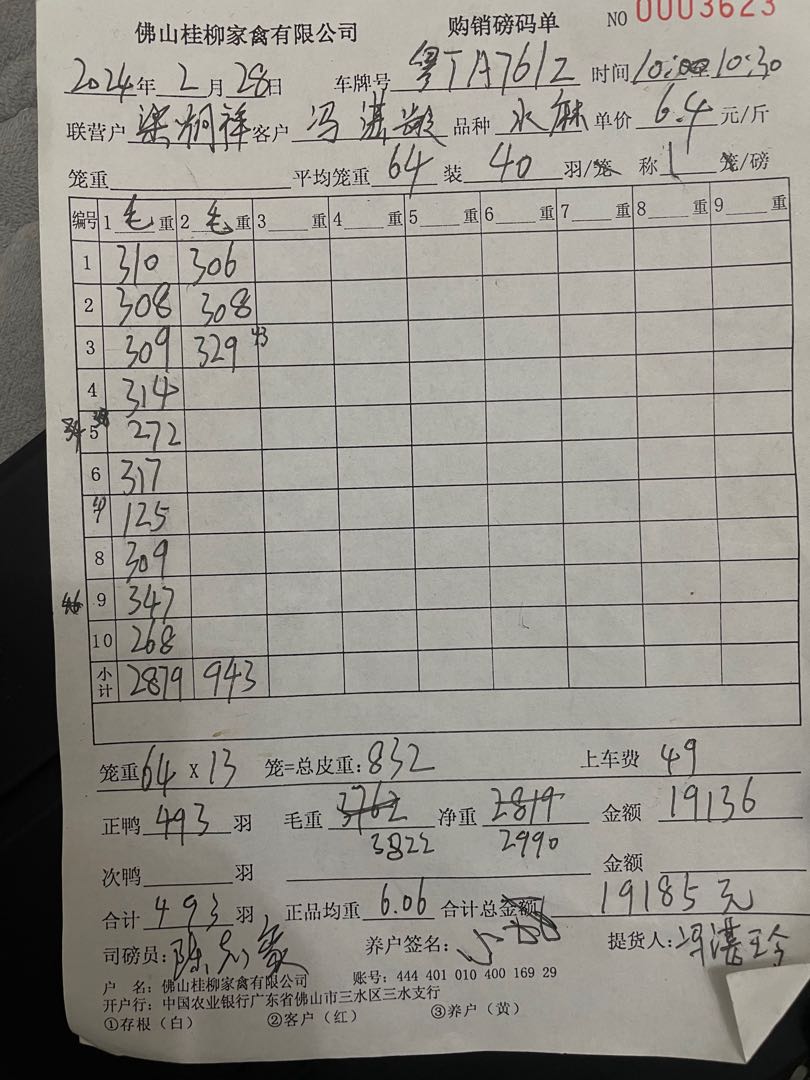 佛山桂柳家禽有限公司 购销磅码单 NO 0003623
2024年 2 月 28日 车牌号 粤TA7612 时间 10:00至10:30
联营户 梁炳祥 客户 冯湛 品种 水麻 单价 6.4 元/斤
笼重 平均笼重 64 装 40 羽/笼 称 1 笼/磅
编号 1 毛 重 2 毛 重 3 重 4 重 5 重 6 重 7 重 8 重 9 重
1 310 306
2 308 308
3 309 329 43
4 314
5 272
6 317
125
8 309
46 9 347
10 268
小计 2879 943
笼重 64 X 13 笼=总皮重: 832 上车费 49
正鸭 493 羽 毛重 3762 净重 2819 金额 19136
3822 2990
次鸭 羽 金额
合计 493 羽 正品均重 6.06 合计总金额 19185元
司磅员: 陈 养户签名: 提货人: 冯湛
户 名: 佛山桂柳家禽有限公司 账号: 444 401 010 400 169 29
开户行: 中国农业银行广东省佛山市三水区三水支行
①存根(白) ②客户(红) ③养户(黄)